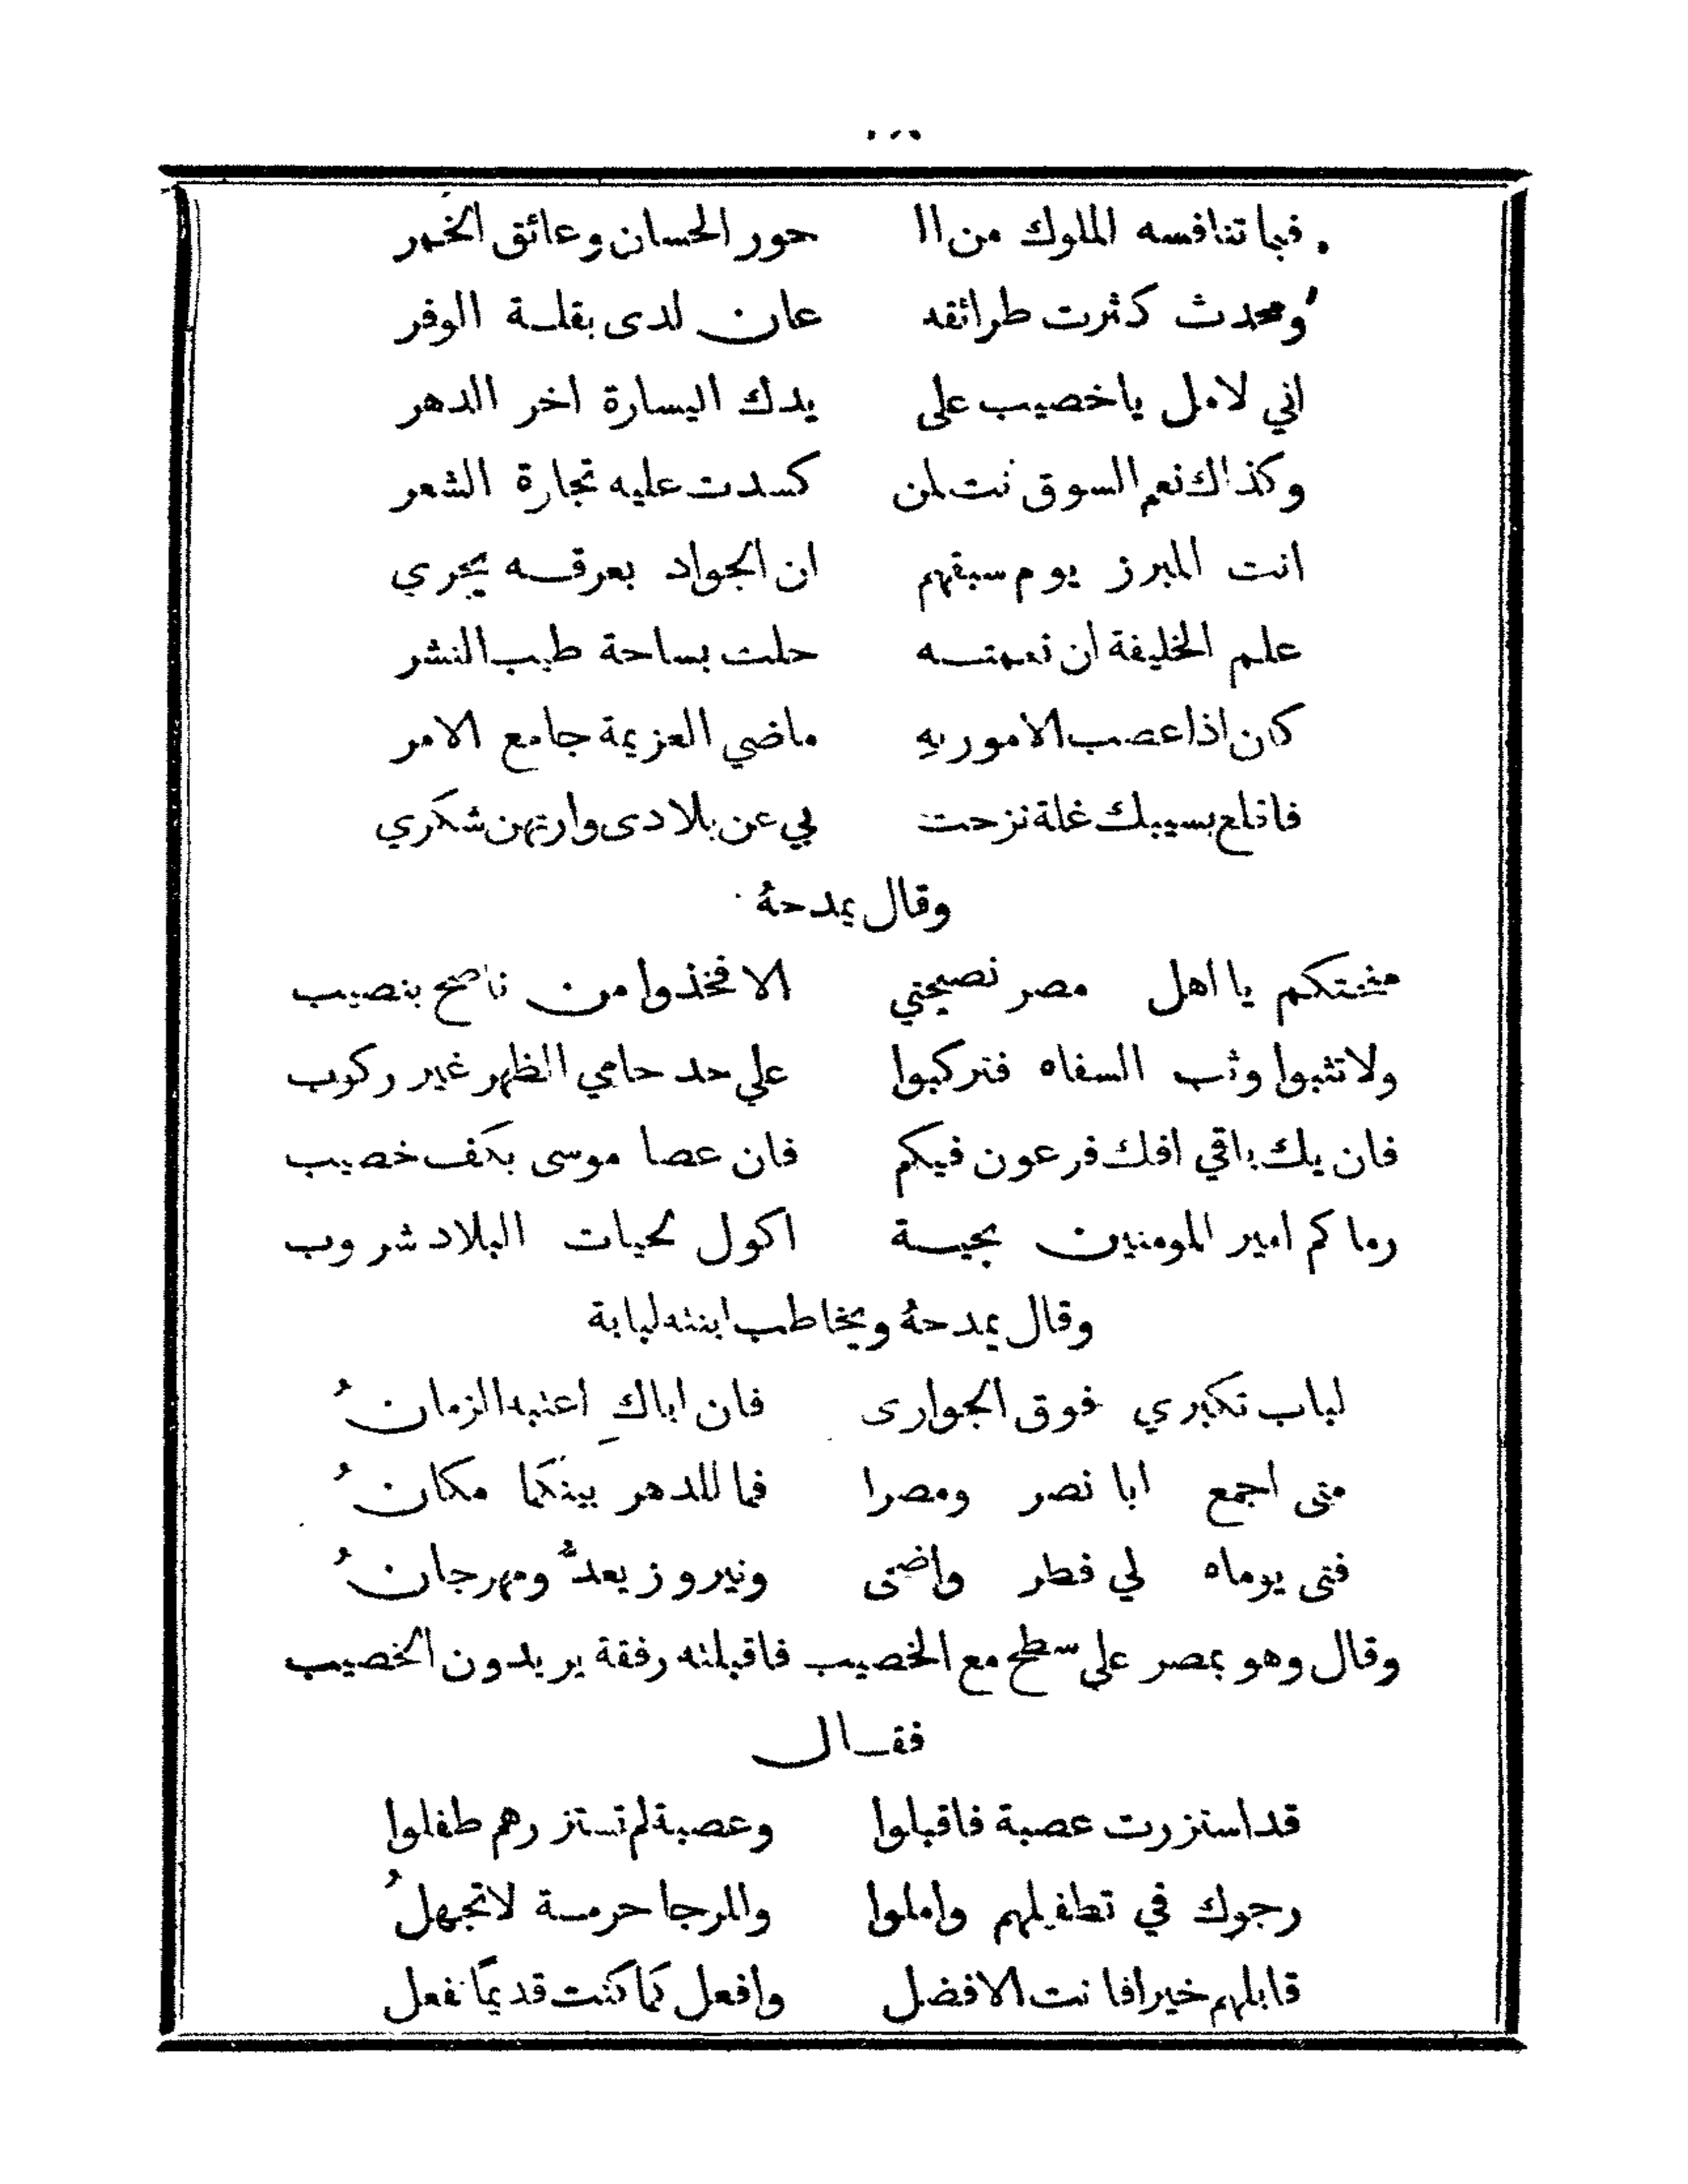 فيما تنافسه الملوك من ال حور الحسان وعائق الخمر
ومحدث كثرت طرائقه عان لدى بقلة الوفر
اني لامل ياخصيب على يدك اليسارة اخر الدهر
وكذاك نعم السوق نت لمن كسدت عليه تجارة الشعر
انت المبرز يوم سبقهم ان الجواد بعرقه يجري
علم الخليفة ان نعمته حلت بساحة طيب النشر
كان اذا عصب الامور به ماضي العزيمة جامع الامر
فانلع بسيبك غلة نزحت بي عن بلادى وارتهن شكري
وقال يمدحهُ
منحتكم يا اهل مصر نصيحتي الا فخذوا من ناصح بنصيب
ولا تثبوا وثب السفاه فتركبوا على حد حامي الظهر غير ركوب
فان يك باقي افك فرعون فيكم فان عصا موسى بكف خصيب
رماكم امير المومنين بحية اكول لحيات البلاد شروب
وقال يمدحهُ ويخاطب ابنته لبابة
لباب تكبري فوق الجوارى فان اباكِ اعتبه الزمانُ
متى اجمع ابا نصر ومصرا فما للدهر بينكما مكانُ
فتى يوماه لي فطر واضحى ونيروز يعدُّ ومهرجانُ
وقال وهو بمصر على سطح مع الخصيب فاقبلته رفقة يريدون الخصيب
فقال
قد استزرت عصبة فاقبلوا وعصبة لم تستزرهم طفلوا
رجوك في تطفيلهم واملوا وللرجا حرمة لا تجهلُ
قابلهم خيرا فانت الافضل وافعل كما كنت قديمًا تفعل